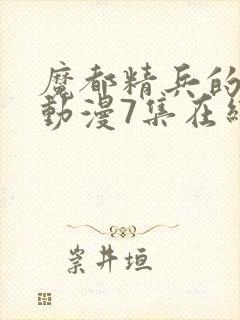 魔都精兵的
動漫7集在
崇井垣